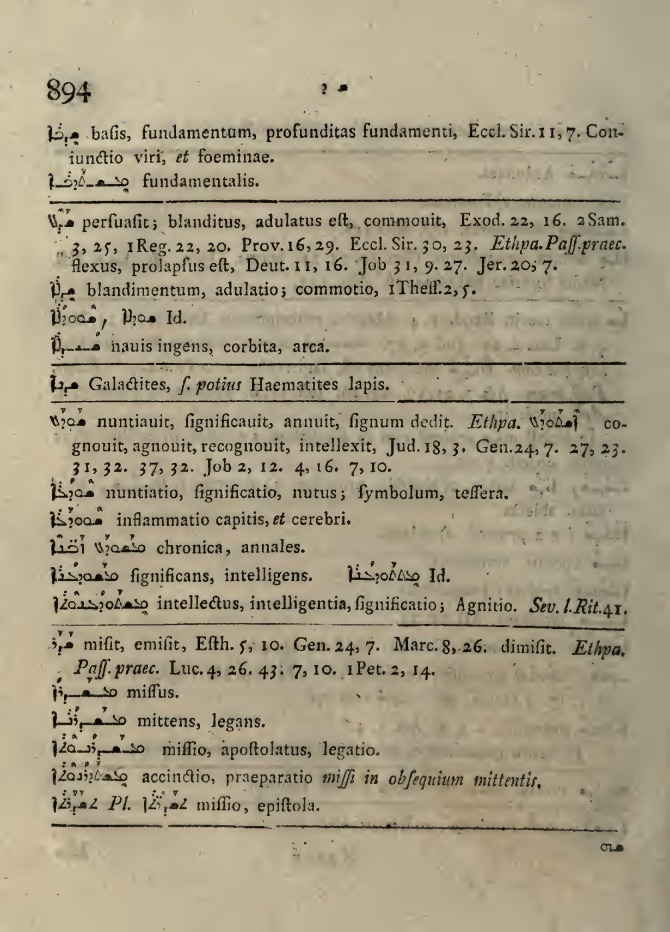 894 ܫ ܕ
baſis, fundamentum, profunditas fundamenti, Eccl. Sir. 11, 7. Con-
iunctio viri, et foeminae.
fundamentalis.
ܫܕܠ perſuaſit; blanditus, adulatus eſt, commouit, Exod. 22, 16. 2 Sam.
3, 25, 1 Reg. 22, 20. Prov. 16, 29. Eccl. Sir. 30, 23. Ethpa. Paſſ. praec.
flexus, prolapſus eſt, Deut. 11, 16. Job 31, 9. 27. Jer. 20, 7.
ܫܕܠܐ blandimentum, adulatio; commotio, 1 Theſſ. 2, 5.
ܫܘܕܠܐ, ܫܘܘܕܠܐ Id.
nauis ingens, corbita, arca.
ܫܕܢܐ Galactites, ſ. potius Haematites lapis.
ܫܘܕܥ nuntiauit, ſignificauit, annuit, ſignum dedit. Ethpa. ܐܫܬܘܕܥ co-
gnouit, agnouit, recognouit, intellexit, Jud. 18, 3. Gen. 24, 7. 27, 23.
31, 32. 37, 32. Job 2, 12. 4, 16. 7, 10.
ܫܘܕܥܐ nuntiatio, ſignificatio, nutus; ſymbolum, teſſera.
ܫܘܘܕܥܐ inflammatio capitis, et cerebri.
ܡܫܘܕܥ ܙܒܢܐ chronica, annales.
ܡܫܘܕܥܢܐ ſignificans, intelligens. ܡܫܬܘܕܥܢܐ Id.
ܡܫܬܘܕܥܢܘܬܐ intellectus, intelligentia, ſignificatio; Agnitio. Sev. l. Rit. 41.
ܫܕܪ miſit, emiſit, Eſth. 5, 10. Gen. 24, 7. Marc. 8, 26. dimiſit. Ethpa.
Paſſ. praec. Luc. 4, 26. 43. 7, 10. 1 Pet. 2, 14.
ܡܫܕܪܐ miſſus.
ܡܫܕܪܢܐ mittens, legans.
ܡܫܕܪܢܘܬܐ miſſio, apoſtolatus, legatio.
ܡܫܬܕܪܢܘܬܐ accinctio, praeparatio miſſi in obſequium mittentis.
ܬܫܕܪܬܐ Pl. ܬܫܕܪ̈ܬܐ miſſio, epiſtola.
ܫܗ